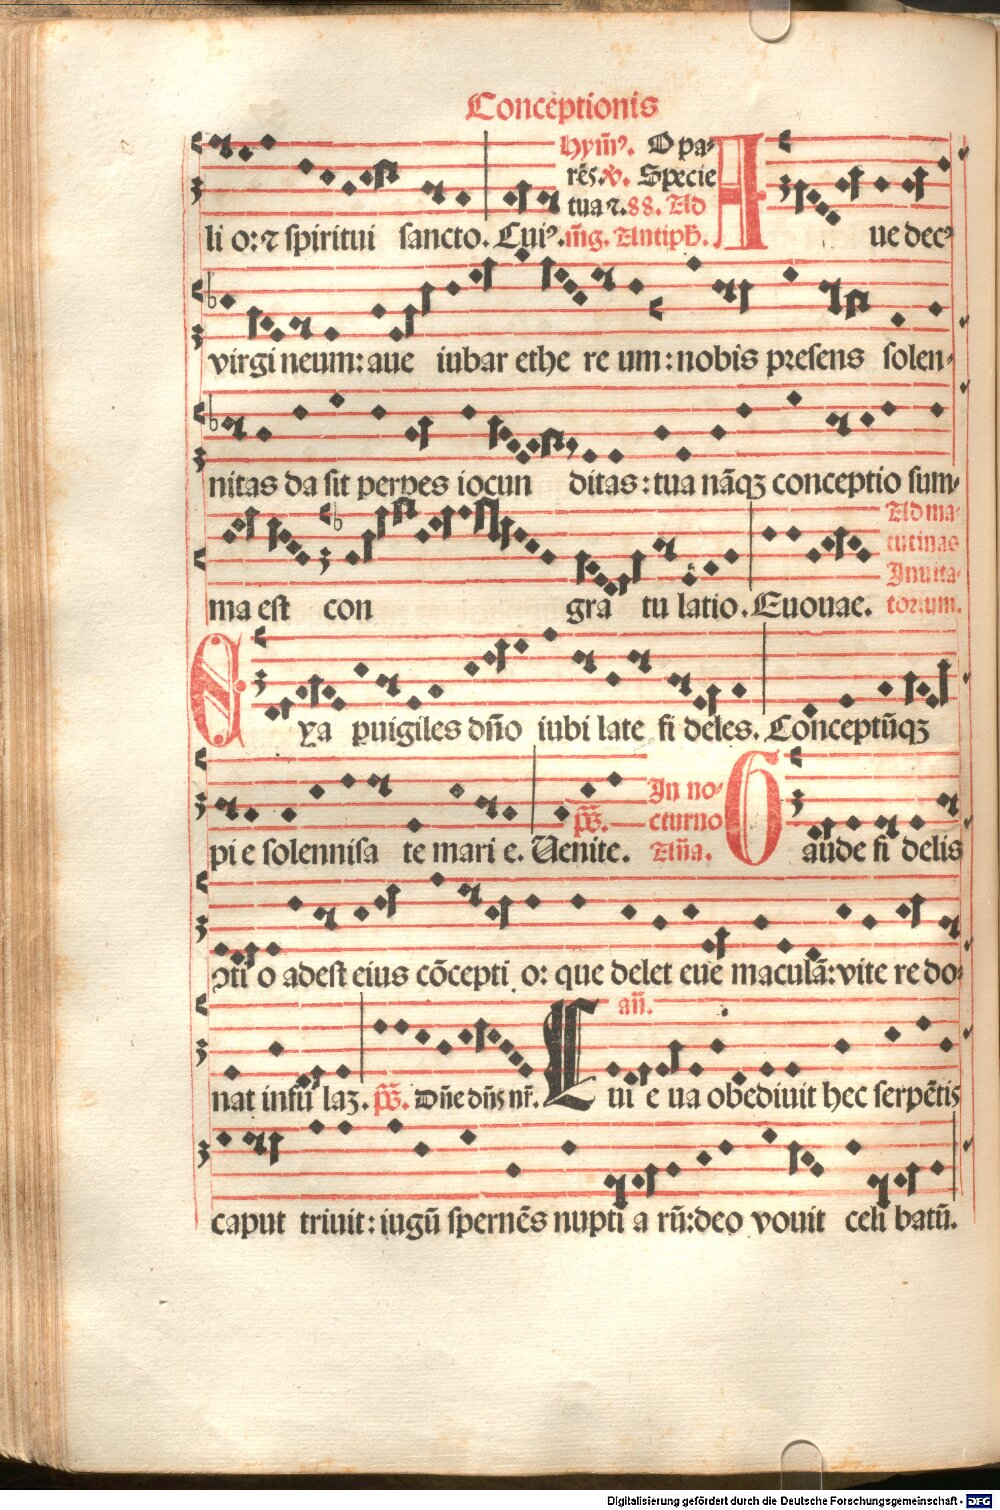 Conceptionis
li o: ⁊ spiritui sancto. Cui⁹.
Hym̄⁹. O pa⸗
rēs. v. Specie
tua ⁊. 88. Ad
m̄g. Antiph.
A ue dec⁹
virgi neum: aue iubar ethe re um: nobis presens solen⸗
nitas da sit perpes iocun ditas: tua nāqꝫ conceptio sum⸗
ma est con gra tu latio. Euouae.
Ad ma⸗
tutinas
Inuita⸗
torium.
E ya puigiles dn̄o iubi late fi deles. Conceptūqꝫ
pi e solennisa te mari e. Uenite. p̄s.
In no⸗
cturno
An̄a.
G aude fi delis
ↄti o adest eius cōcepti o: que delet eue maculā: vite re do⸗
nat infū laꝫ. p̄s. Dn̄e dn̄s nr̄. an̄. L ui e ua obediuit hec serpētis
caput triuit: iugū spernēs nupti a rū: deo vouit celi batū.
Digitalisierung gefördert durch die Deutsche Forschungsgemeinschaft - DFG